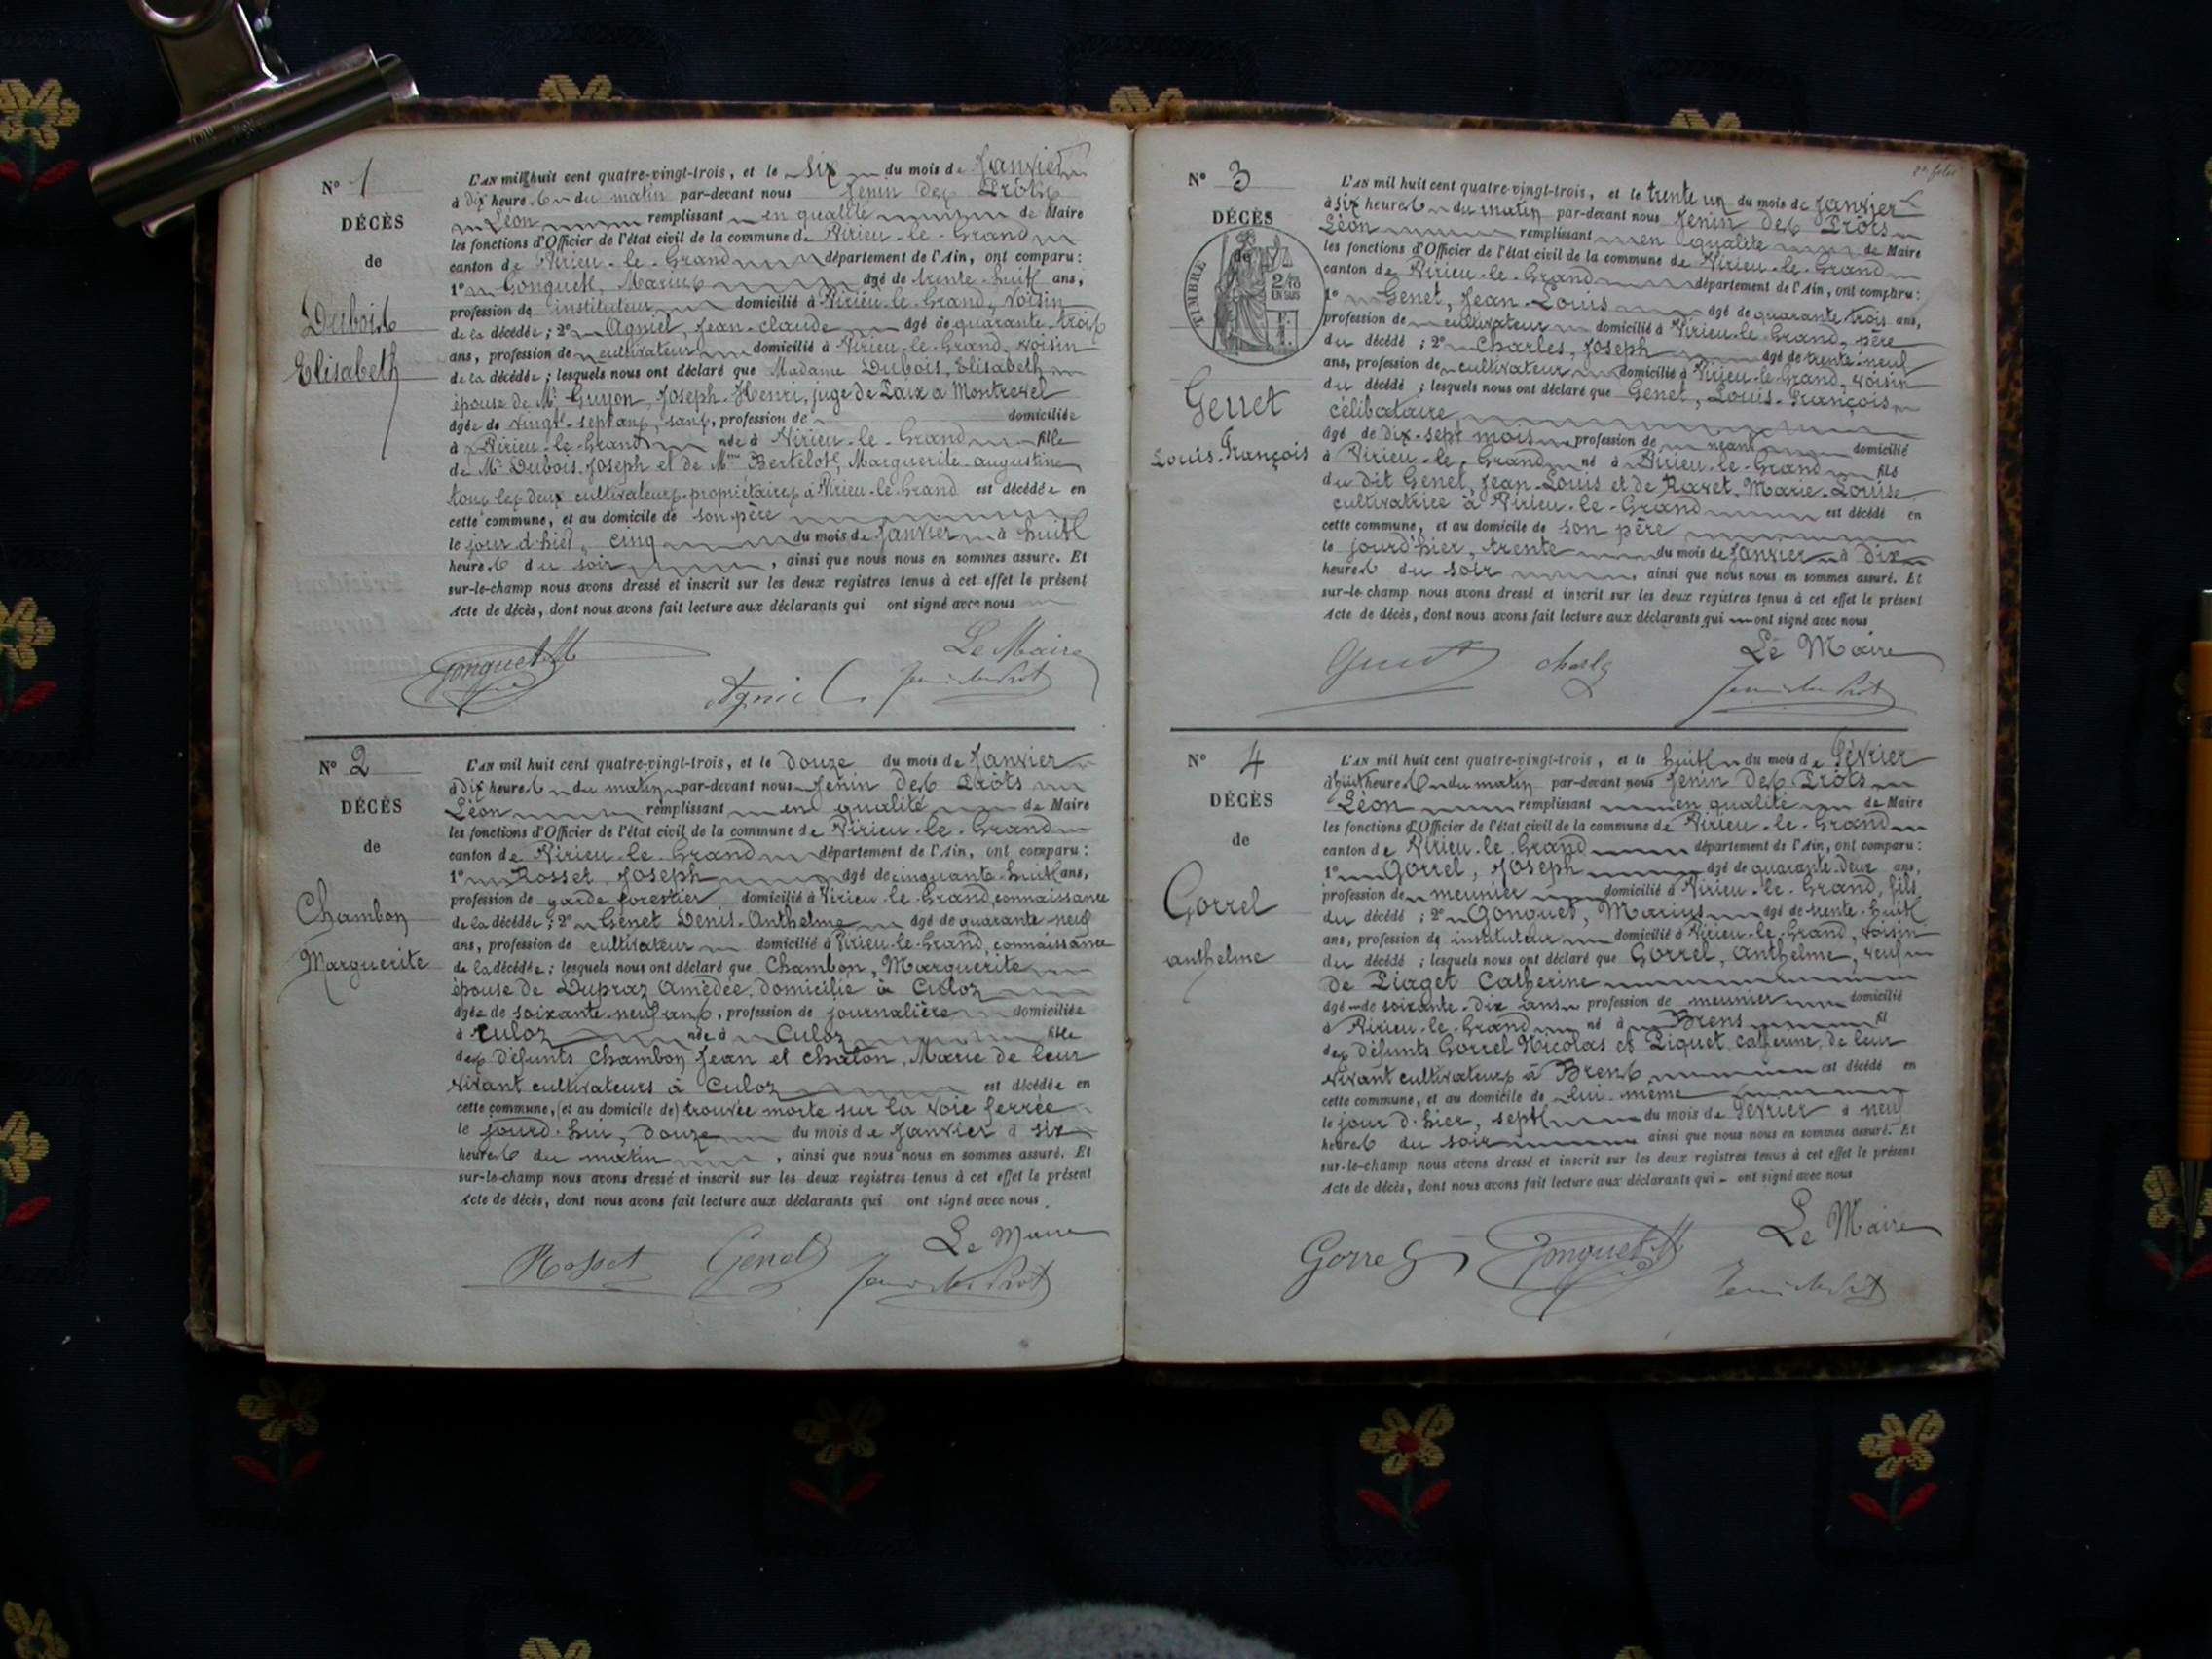 N° 1
DÉCÈS
de
Dubois
Elisabeth
L'an mil huit cent quatre-vingt-trois, et le six du mois de Janvier
à dix heures du matin par-devant nous Jenin des Prôts
Léon remplissant en qualité de Maire
les fonctions d'Officier de l'état civil de la commune de Virieu-le-Grand
canton de Virieu-le-Grand département de l'Ain, ont comparu:
1° Gonguet, Marius âgé de trente-huit ans,
profession de instituteur domicilié à Virieu-le-Grand, voisin
de la décédée; 2° Agniel, Jean-Claude âgé de quarante-trois
ans, profession de cultivateur domicilié à Virieu-le-Grand, voisin
de la décédée; lesquels nous ont déclaré que Madame Dubois, Elisabeth
épouse de Mr Guyon, Joseph-Henri, juge de Paix à Montrevel
âgée de vingt-sept ans, sans, profession de domiciliée
à Virieu-le-Grand née à Virieu-le-Grand fille
de Mr Dubois Joseph et de Mme Bertelot, Marguerite-Augustine
tous les deux cultivateurs-propriétaires à Virieu-le-Grand est décédée en
cette commune, et au domicile de son père
le jour d'hier, cinq du mois de Janvier à huit
heures du soir, ainsi que nous nous en sommes assuré. Et
sur-le-champ nous avons dressé et inscrit sur les deux registres tenus à cet effet le présent
Acte de décès, dont nous avons fait lecture aux déclarants qui ont signé avec nous
Le Maire
Gonguet M Agniel Jenin des Prôts
N° 2
DÉCÈS
de
Chambon
Marguerite
L'an mil huit cent quatre-vingt-trois, et le douze du mois de Janvier
à dix heures du matin par-devant nous Jenin des Prôts
Léon remplissant en qualité de Maire
les fonctions d'Officier de l'état civil de la commune de Virieu-le-Grand
canton de Virieu-le-Grand département de l'Ain, ont comparu:
1° Rosset, Joseph âgé de cinquante-huit ans,
profession de garde forestier domicilié à Virieu-le-Grand, connaissance
de la décédée; 2° Genet Denis-Anthelme âgé de quarante-neuf
ans, profession de cultivateur domicilié à Virieu-le-Grand, connaissance
de la décédée; lesquels nous ont déclaré que Chambon, Marguerite
épouse de Dupraz Amédée, domicilié à Culoz
âgée de soixante-neuf ans, profession de journalière domiciliée
à Culoz née à Culoz fille
des défunts Chambon Jean et Chaton, Marie de leur
vivant cultivateurs à Culoz est décédée en
cette commune, (et au domicile de) trouvée morte sur la voie ferrée
le jourd'hui, douze du mois de Janvier à six
heures du matin, ainsi que nous nous en sommes assuré. Et
sur-le-champ nous avons dressé et inscrit sur les deux registres tenus à cet effet le présent
Acte de décès, dont nous avons fait lecture aux déclarants qui ont signé avec nous.
Le Maire
Rosset Genet Jenin des Prôts
2e folio
N° 3
DÉCÈS
de
TIMBRE
2/10
EN SUS
Genet
Louis-François
L'an mil huit cent quatre-vingt-trois, et le trente un du mois de Janvier
à six heures du matin par-devant nous Jenin des Prôts
Léon remplissant en qualité de Maire
les fonctions d'Officier de l'état civil de la commune de Virieu-le-Grand
canton de Virieu-le-Grand département de l'Ain, ont comparu:
1° Genet, Jean-Louis âgé de quarante trois ans,
profession de cultivateur domicilié à Virieu-le-Grand, père
du décédé; 2° Charles, Joseph âgé de trente-neuf
ans, profession de cultivateur domicilié à Virieu-le-Grand, voisin
du décédé; lesquels nous ont déclaré que Genet, Louis-François
célibataire
âgé de dix-sept mois profession de néant domicilié
à Virieu-le-Grand né à Virieu-le-Grand fils
du dit Genet, Jean-Louis et de Ravet, Marie-Louise
cultivatrice à Virieu-le-Grand est décédé en
cette commune, et au domicile de son père
le jourd'hier, trente du mois de Janvier à dix
heures du soir, ainsi que nous nous en sommes assuré. Et
sur-le-champ nous avons dressé et inscrit sur les deux registres tenus à cet effet le présent
Acte de décès, dont nous avons fait lecture aux déclarants qui ont signé avec nous
Le Maire
Genet Charles Jenin des Prôts
N° 4
DÉCÈS
de
Gorrel
anthelme
L'an mil huit cent quatre-vingt-trois, et le huit du mois de Février
à huit heures du matin par-devant nous Jenin des Prôts
Léon remplissant en qualité de Maire
les fonctions d'Officier de l'état civil de la commune de Virieu-le-Grand
canton de Virieu-le-Grand département de l'Ain, ont comparu:
1° Gorrel, Joseph âgé de quarante-deux ans,
profession de meunier domicilié à Virieu-le-Grand, fils
du décédé; 2° Gonguet, Marius âgé de trente-huit
ans, profession de instituteur domicilié à Virieu-le-Grand, voisin
du décédé; lesquels nous ont déclaré que Gorrel, Anthelme, veuf
de Piaget Catherine
âgé de soixante-dix ans profession de meunier domicilié
à Virieu-le-Grand né à Brens fil
des défunts Gorrel Nicolas et Piquet, catherine, de leur
vivant cultivateurs à Brens est décédé en
cette commune, et au domicile de lui-même
le jour d'hier, sept du mois de Février à neuf
heures du soir ainsi que nous nous en sommes assuré. Et
sur-le-champ nous avons dressé et inscrit sur les deux registres tenus à cet effet le présent
Acte de décès, dont nous avons fait lecture aux déclarants qui ont signé avec nous
Le Maire
Gorrel Gonguet M Jenin des Prôts